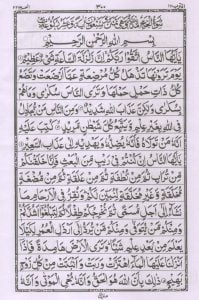 ۳۰۰
بِسْمِ اللّٰهِ الرَّحْمٰنِ الرَّحِيْمِ
يٰۤاَيُّهَا النَّاسُ اتَّقُوْا رَبَّكُمْ اِنَّ زَلْزَلَةَ السَّاعَةِ شَيْءٌ عَظِيْمٌ
يَوْمَ تَرَوْنَهَا تَذْهَلُ كُلُّ مُرْضِعَةٍ عَمَّاۤ اَرْضَعَتْ وَتَضَعُ
كُلُّ ذَاتِ حَمْلٍ حَمْلَهَا وَتَرَى النَّاسَ سُكٰرٰى وَمَا هُمْ
بِسُكٰرٰى وَلٰكِنَّ عَذَابَ اللّٰهِ شَدِيْدٌ وَمِنَ النَّاسِ مَنْ يُّجَادِلُ
فِي اللّٰهِ بِغَيْرِ عِلْمٍ وَّيَتَّبِعُ كُلَّ شَيْطٰنٍ مَّرِيْدٍ كُتِبَ عَلَيْهِ
اَنَّهٗ مَنْ تَوَلَّاهُ فَاَنَّهٗ يُضِلُّهٗ وَيَهْدِيْهِ اِلٰى عَذَابِ السَّعِيْرِ
يٰۤاَيُّهَا النَّاسُ اِنْ كُنْتُمْ فِيْ رَيْبٍ مِّنَ الْبَعْثِ فَاِنَّا خَلَقْنٰكُمْ
مِّنْ تُرَابٍ ثُمَّ مِنْ نُّطْفَةٍ ثُمَّ مِنْ عَلَقَةٍ ثُمَّ مِنْ مُّضْغَةٍ
مُّخَلَّقَةٍ وَّغَيْرِ مُخَلَّقَةٍ لِّنُبَيِّنَ لَكُمْ وَنُقِرُّ فِي الْاَرْحَامِ مَا
نَشَآءُ اِلٰۤى اَجَلٍ مُّسَمًّى ثُمَّ نُخْرِجُكُمْ طِفْلًا ثُمَّ لِتَبْلُغُوْۤا اَشُدَّكُمْ
وَمِنْكُمْ مَّنْ يُّتَوَفّٰى وَمِنْكُمْ مَّنْ يُّرَدُّ اِلٰۤى اَرْذَلِ الْعُمُرِ لِكَيْلَا
يَعْلَمَ مِنْۢ بَعْدِ عِلْمٍ شَيْـًٔا وَتَرَى الْاَرْضَ هَامِدَةً فَاِذَاۤ
اَنْزَلْنَا عَلَيْهَا الْمَآءَ اهْتَزَّتْ وَرَبَتْ وَاَنْۢبَتَتْ مِنْ كُلِّ زَوْجٍۭ
بَهِيْجٍ ذٰلِكَ بِاَنَّ اللّٰهَ هُوَ الْحَقُّ وَاَنَّهٗ يُحْيِ الْمَوْتٰى وَاَنَّهٗ